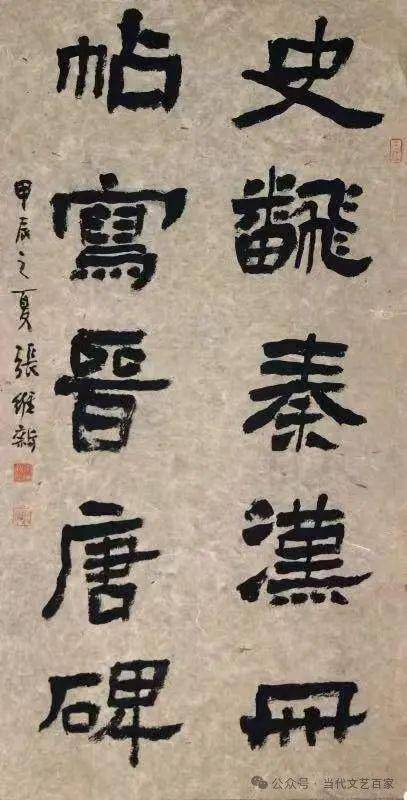 史飜秦漢冊
帖寫晉唐碑
甲辰之夏張維新
公众号·当代文艺百家